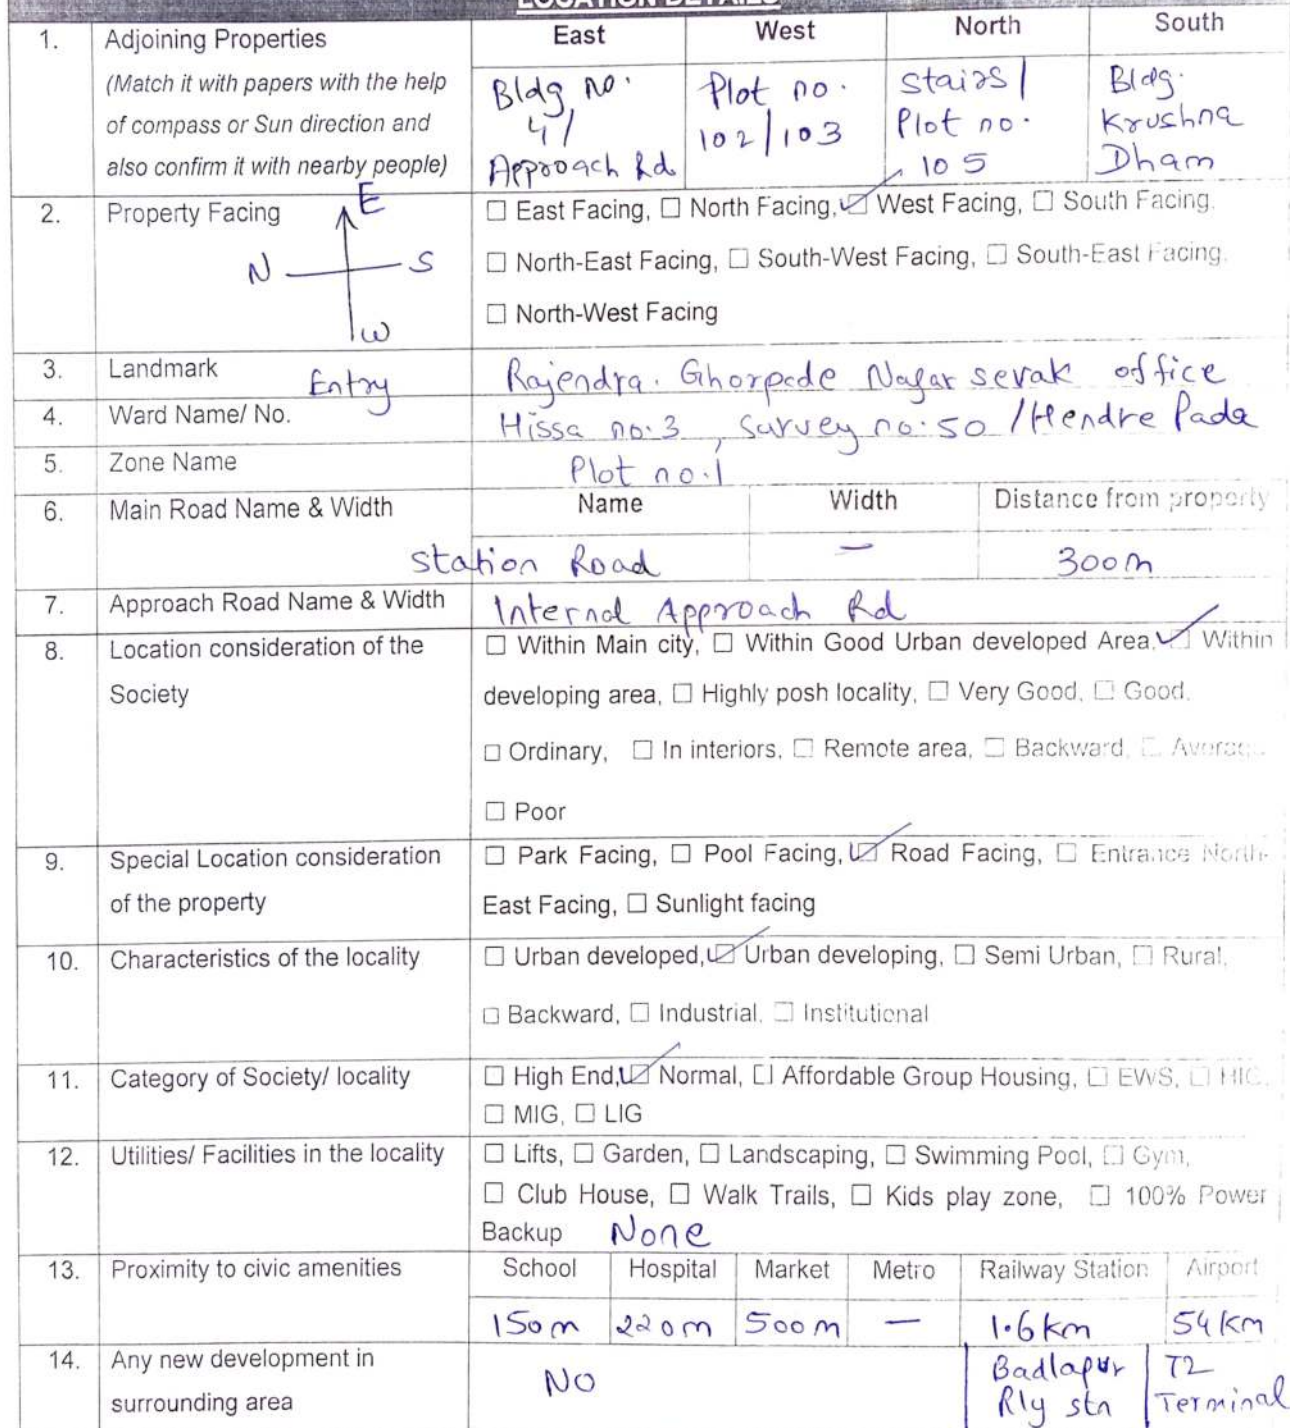 LOCATION DETAILS
1. Adjoining Properties East West North South
(Match it with papers with the help
of compass or Sun direction and
also confirm it with nearby people)
Bldg no.
4/
Approach Rd
Plot no.
102/103
Stairs/
Plot no.
105
Bldg.
Krushna
Dham
2. Property Facing
E
N S
W
☐ East Facing, ☐ North Facing, ☑ West Facing, ☐ South Facing,
☐ North-East Facing, ☐ South-West Facing, ☐ South-East Facing,
☐ North-West Facing
3. Landmark Rajendra. Ghorpade Nagar sevak office
Entry
4. Ward Name/ No. Hissa no.3, Survey no.50 / Hendre Pada
5. Zone Name Plot no.1
6. Main Road Name & Width Name Width Distance from property
Station Road — 300m
7. Approach Road Name & Width Internal Approach Rd
8. Location consideration of the
Society
☐ Within Main city, ☐ Within Good Urban developed Area, ☑ Within
developing area, ☐ Highly posh locality, ☐ Very Good, ☐ Good,
☐ Ordinary, ☐ In interiors, ☐ Remote area, ☐ Backward, ☐ Average,
☐ Poor
9. Special Location consideration
of the property
☐ Park Facing, ☐ Pool Facing, ☑ Road Facing, ☐ Entrance North-
East Facing, ☐ Sunlight facing
10. Characteristics of the locality
☐ Urban developed, ☑ Urban developing, ☐ Semi Urban, ☐ Rural,
☐ Backward, ☐ Industrial, ☐ Institutional
11. Category of Society/ locality
☐ High End, ☑ Normal, ☐ Affordable Group Housing, ☐ EWS, ☐ HIG,
☐ MIG, ☐ LIG
12. Utilities/ Facilities in the locality
☐ Lifts, ☐ Garden, ☐ Landscaping, ☐ Swimming Pool, ☐ Gym,
☐ Club House, ☐ Walk Trails, ☐ Kids play zone, ☐ 100% Power
Backup None
13. Proximity to civic amenities School Hospital Market Metro Railway Station Airport
150m 220m 500m — 1.6km 54km
14. Any new development in
surrounding area
NO
Badlapur
Rly stn
T2
Terminal